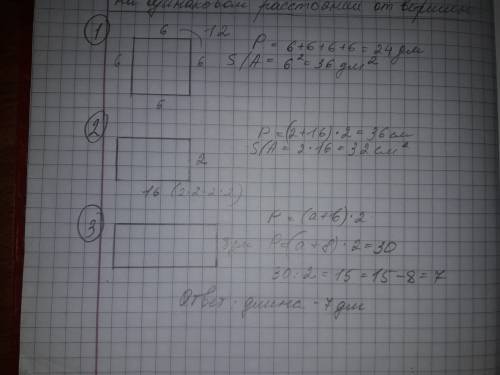 на одинаковом расстоянии от вершин
1
6 12
6 6
6
P = 6+6+6+6=24 дм
S/A = 6²=36 дм²
2
2
16 (2·2·2·2)
P=(2+16)·2=36см
S/A= 2·16=32 см²
3
P = (a+b)·2
P=(a+8)·2=30
30:2=15=15-8=7
Ответ: длина - 7 дм